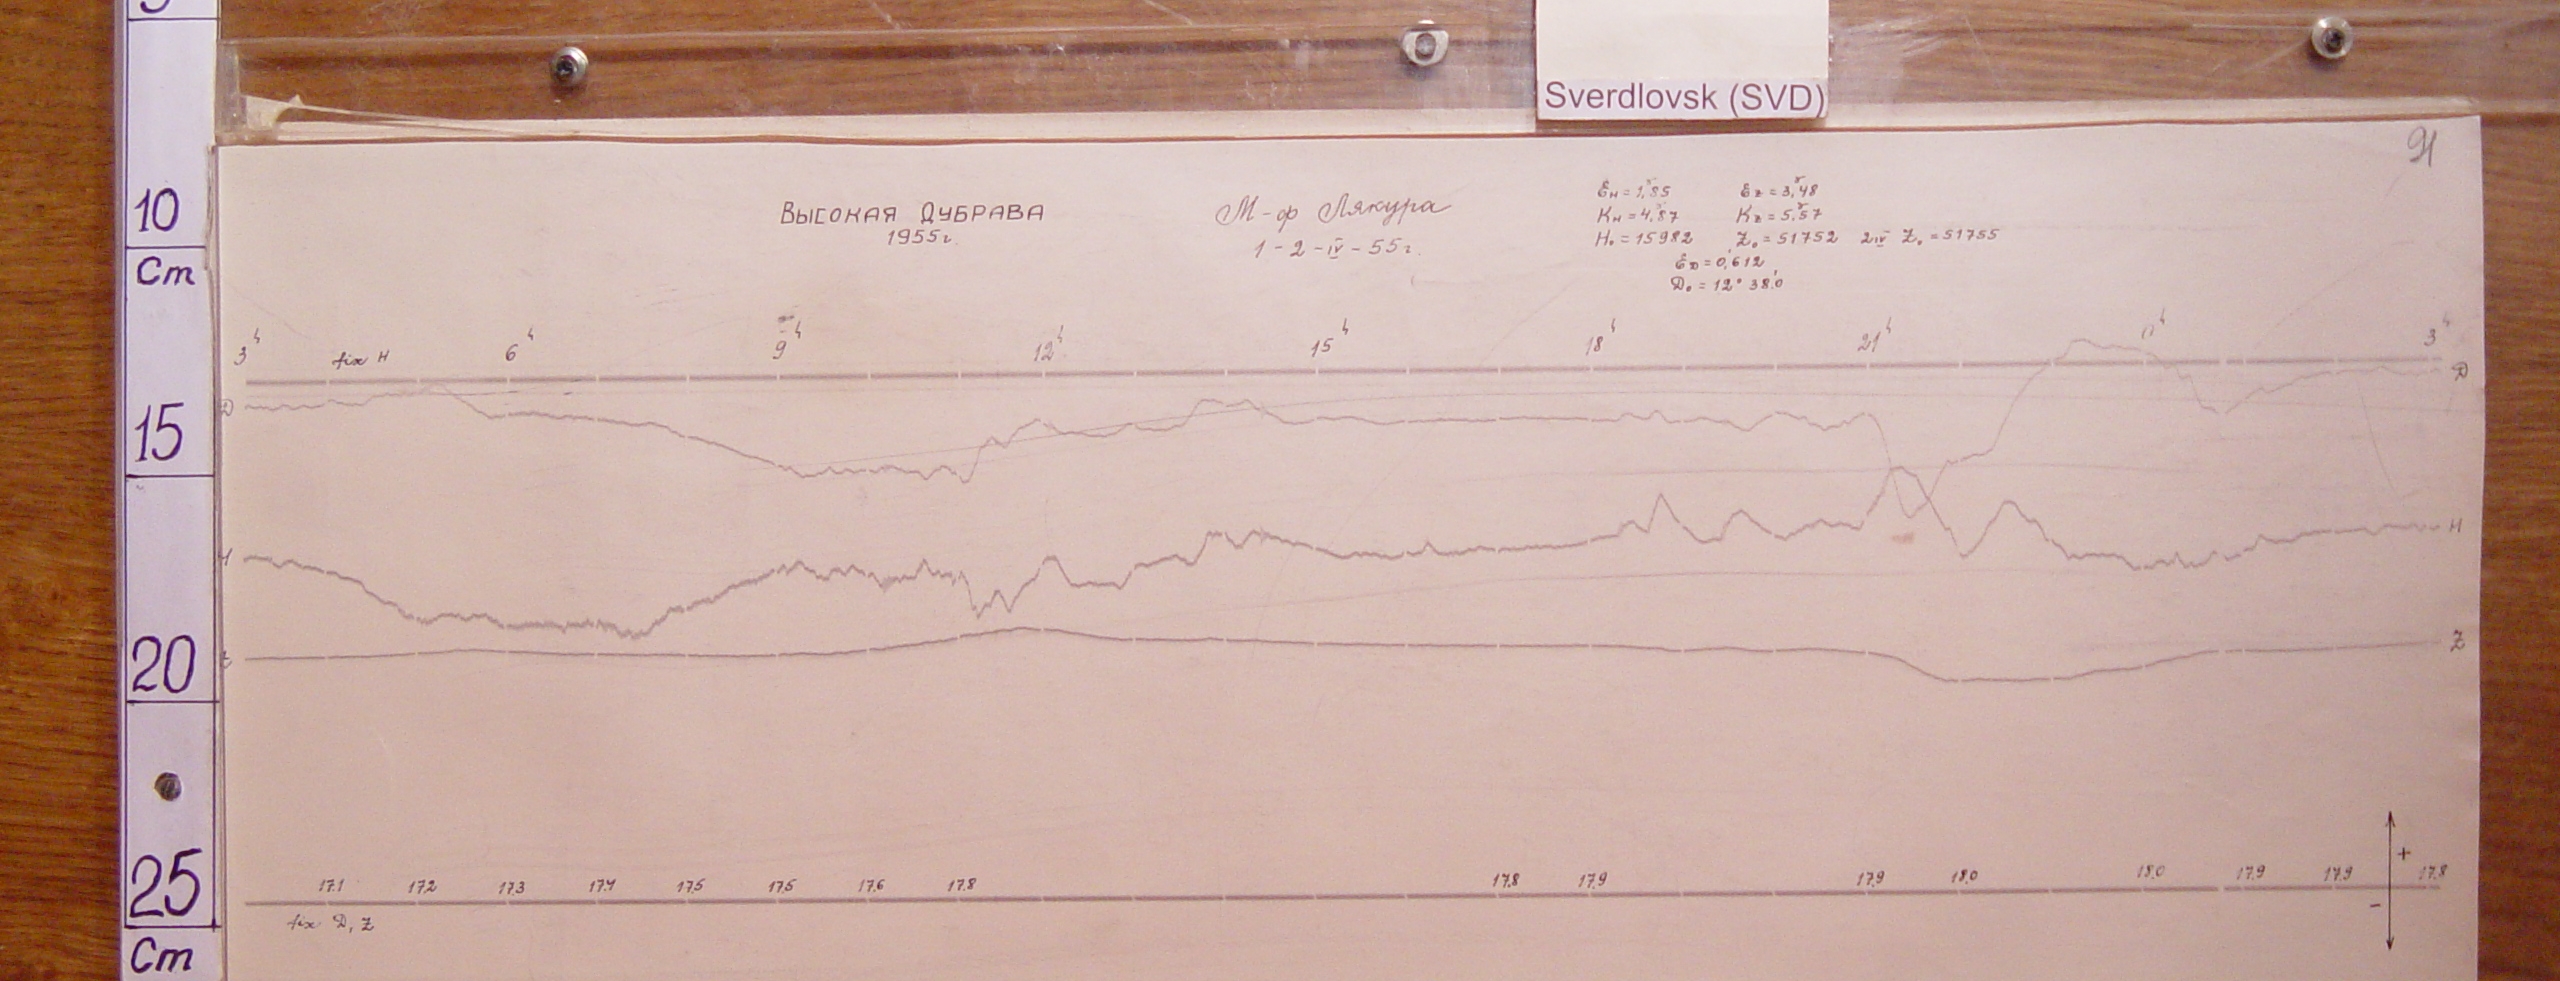 Sverdlovsk (SVD)
91
ВЫСОКАЯ ДУБРАВА
1955г.
М-ф Лякура
1-2-IV-55г.
Ɛн=1,85 Ɛz=3,48
Kн=4,87 Kz=5,57
H₀=15982 Z₀=51752 2IV Z₀=51755
ƐD=0,612
D₀=12° 38,0
3ʰ fix H 6ʰ 9ʰ 12ʰ 15ʰ 18ʰ 21ʰ 0ʰ 3ʰ
D D
H H
Z Z
17.1 17.2 17.3 17.4 17.5 17.5 17.6 17.8 17.8 17.9 17.9 18.0 18.0 17.9 17.9 17.8
+
-
fix D, Z
10
Cm
15
20
25
Cm